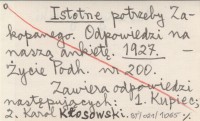 Istotne potrzeby Za-
kopanego. Odpowiedzi na
naszą ankietę. 1927. —
Życie Podh. nr. 200.
Zawiera odpowiedzi
następujących: 1. Kupiec;
2. Karol Kłosowski.